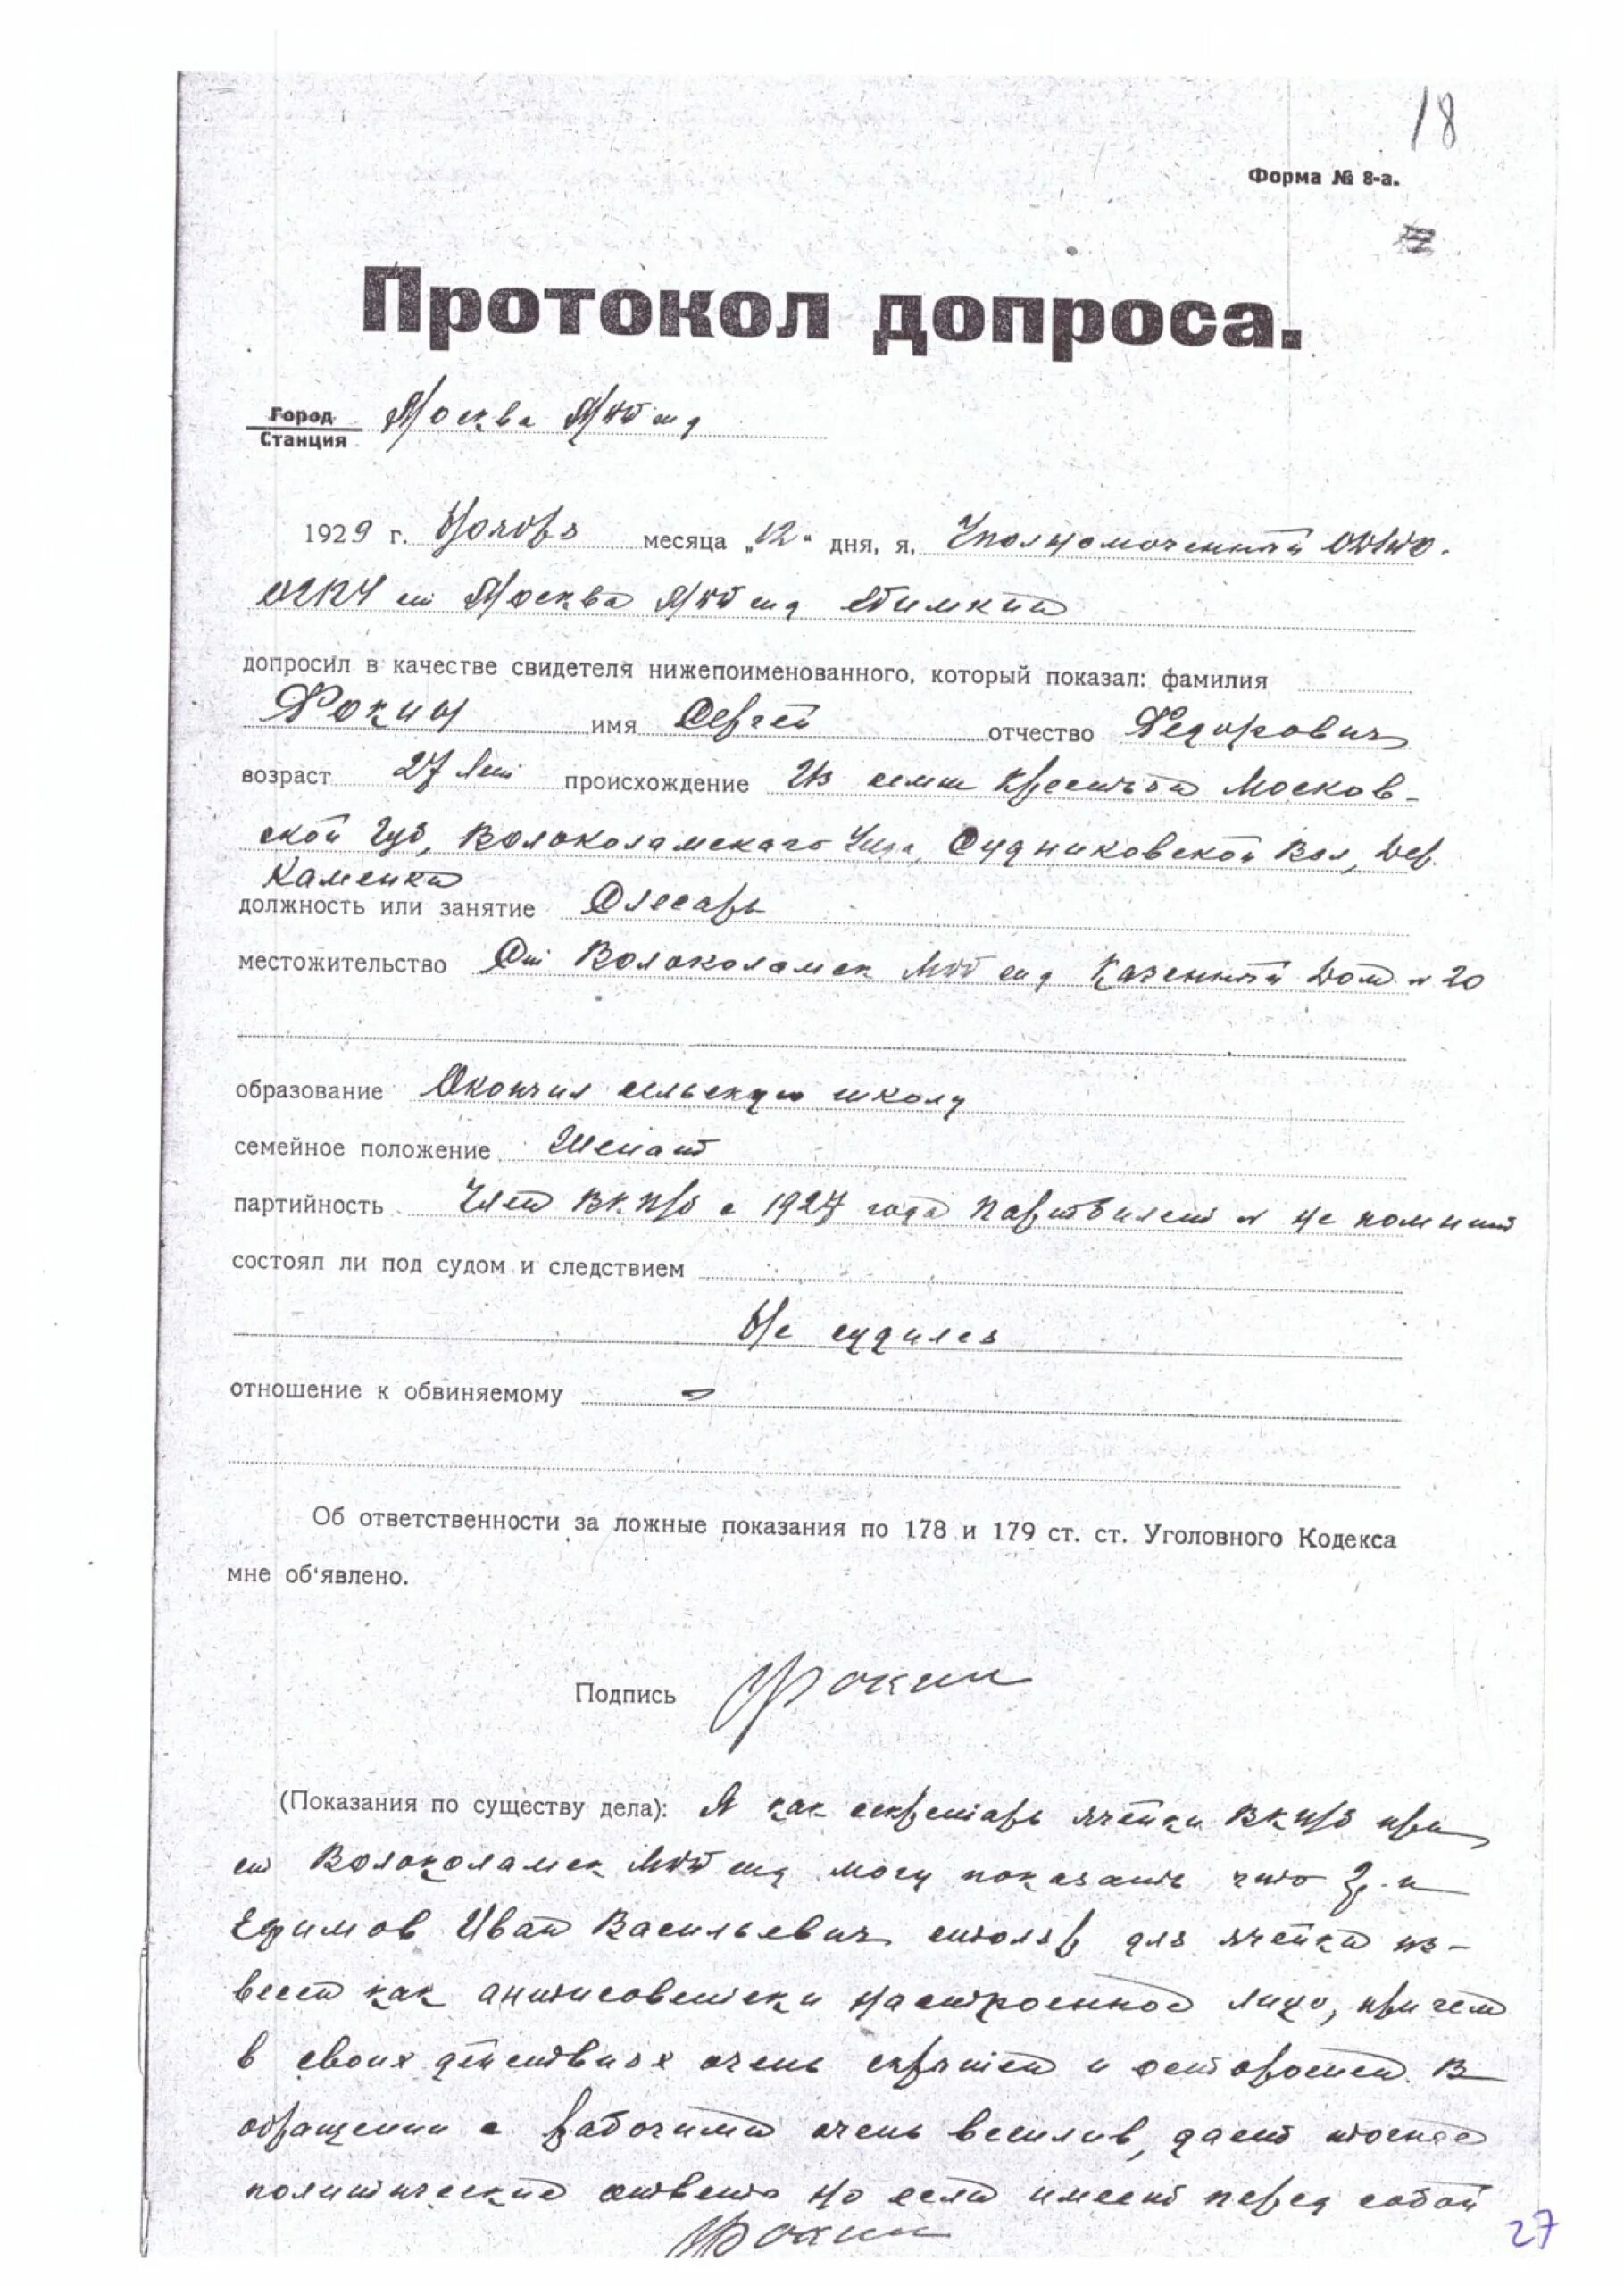 18
Форма № 8-а.
Протокол допроса.
Город
Станция Москва
1929 г. Ноября месяца „12“ дня, я, Уполномоченный ОДТО
ОГПУ ст Москва
допросил в качестве свидетеля нижепоименованного, который показал: фамилия
Фокин имя Сергей отчество Федорович
возраст 27 лет происхождение Из семьи крестьян Москов-
ской Губ, Волоколамского Уезда, Судниковской Вол, Дер.
Каменки
должность или занятие Слесарь
местожительство Ст Волоколамск МББ жд Казенный Дом № 20
образование Окончил сельскую школу
семейное положение Женат
партийность Член ВКП/б с 1927 года Партбилет № не помнит
состоял ли под судом и следствием
Не судился
отношение к обвиняемому —
Об ответственности за ложные показания по 178 и 179 ст. ст. Уголовного Кодекса
мне об'явлено.
Подпись Фокин
(Показания по существу дела): Я как секретарь ячейки ВКП/б при
ст Волоколамск МББ жд могу показать что гр-н
Ефимов Иван Васильевич столяр для ячейки из-
вестен как антисоветски настроенное лицо, при чем
в своих действиях очень скрытен и осторожен. В
обращении с рабочими очень вежлив, дает точные
политические ответы но если имеет перед собой
Фокин
27